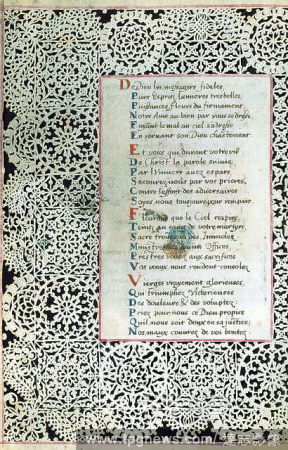 De Dieu les messagers fideles,
Purs Esprits, lumieres tresbelles,
Puissances, fleurs du firmament
Notre Ame au bien par vous se dresse,
Fuyant le mal au ciel s'adresse
En son Dieu chastement
Et vous qui durant votre vie
De Christ la parole suivie,
Par l'Univers avez espars
Secourez-nous par vos prieres,
Contre l'effort des adversaires
Soyez nous toujours pour rempars
que le Ciel respire
Teints au sang de votre martyre,
Sacre des Immolez
Ministres Offices,
Prestres vouez aux sacrifices
Vos voeux nous rendent consolez
Vierges vrayement glorieuses,
Qui triomphez victorieuses
Des douleurs & des voluptez:
Priez pour nous ce Dieu propice
Qu'il nous soit doux en sa justice;
Nos maux couvrez de vos bontez.
www.tpgnews.com/達志影像